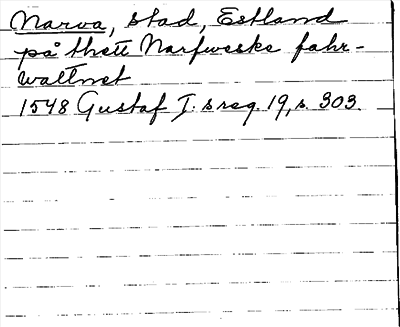 Narva, stad, Estland
på thett Narfweske fahr-
wattnet
1548 Gustaf I:s reg 19, s. 303.